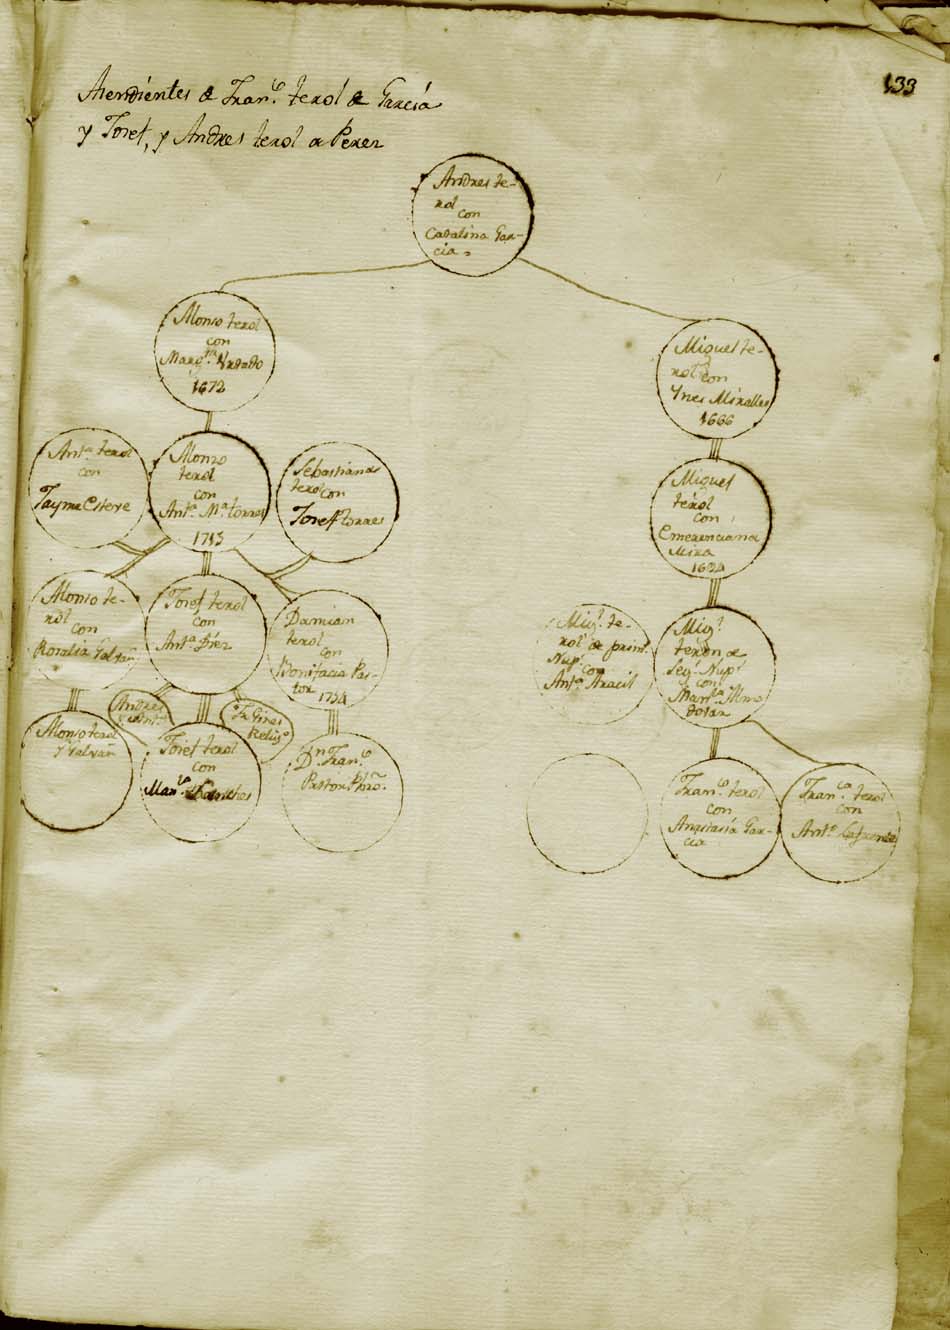 133
Asendientes de Fran.co terol de Garcia
y Josef, y Andres terol de Perez
Andres te-
rol
con
Catalina Gar-
cia
Alonso terol
con
Marg.ta
1672
Miguel te-
rol
con
Ynes Miralles
1666
Ant.a terol
con
Jayme Esteve
Alonso
terol
con
Ant.a M.a torres
1713
Sebastiana
terol con
Josef torres
Miguel
terol
con
Emerenciana
Mira
1694
Alonso te-
rol
con
Rosalia Galvañ
Josef terol
con
Ant.a Diez
Damian
terol
con
Bonifacia Pas-
tor
1734
Mig.l te-
rol de prim.s
Nup.s con
Ant.a Aracil
Mig.l
terol de
Seg.s Nup.s
con
Man.la Almo
dovar
Andres
y Ant.a
Fr Gines
Relig.o
Alonso terol
y Galvañ
Josef terol
con
Man.la Sanches
D.n Fran.co
Pastor Pbro.
Fran.co terol
con
Anastasia Gar-
cia
Fran.ca terol
con
Ant.o